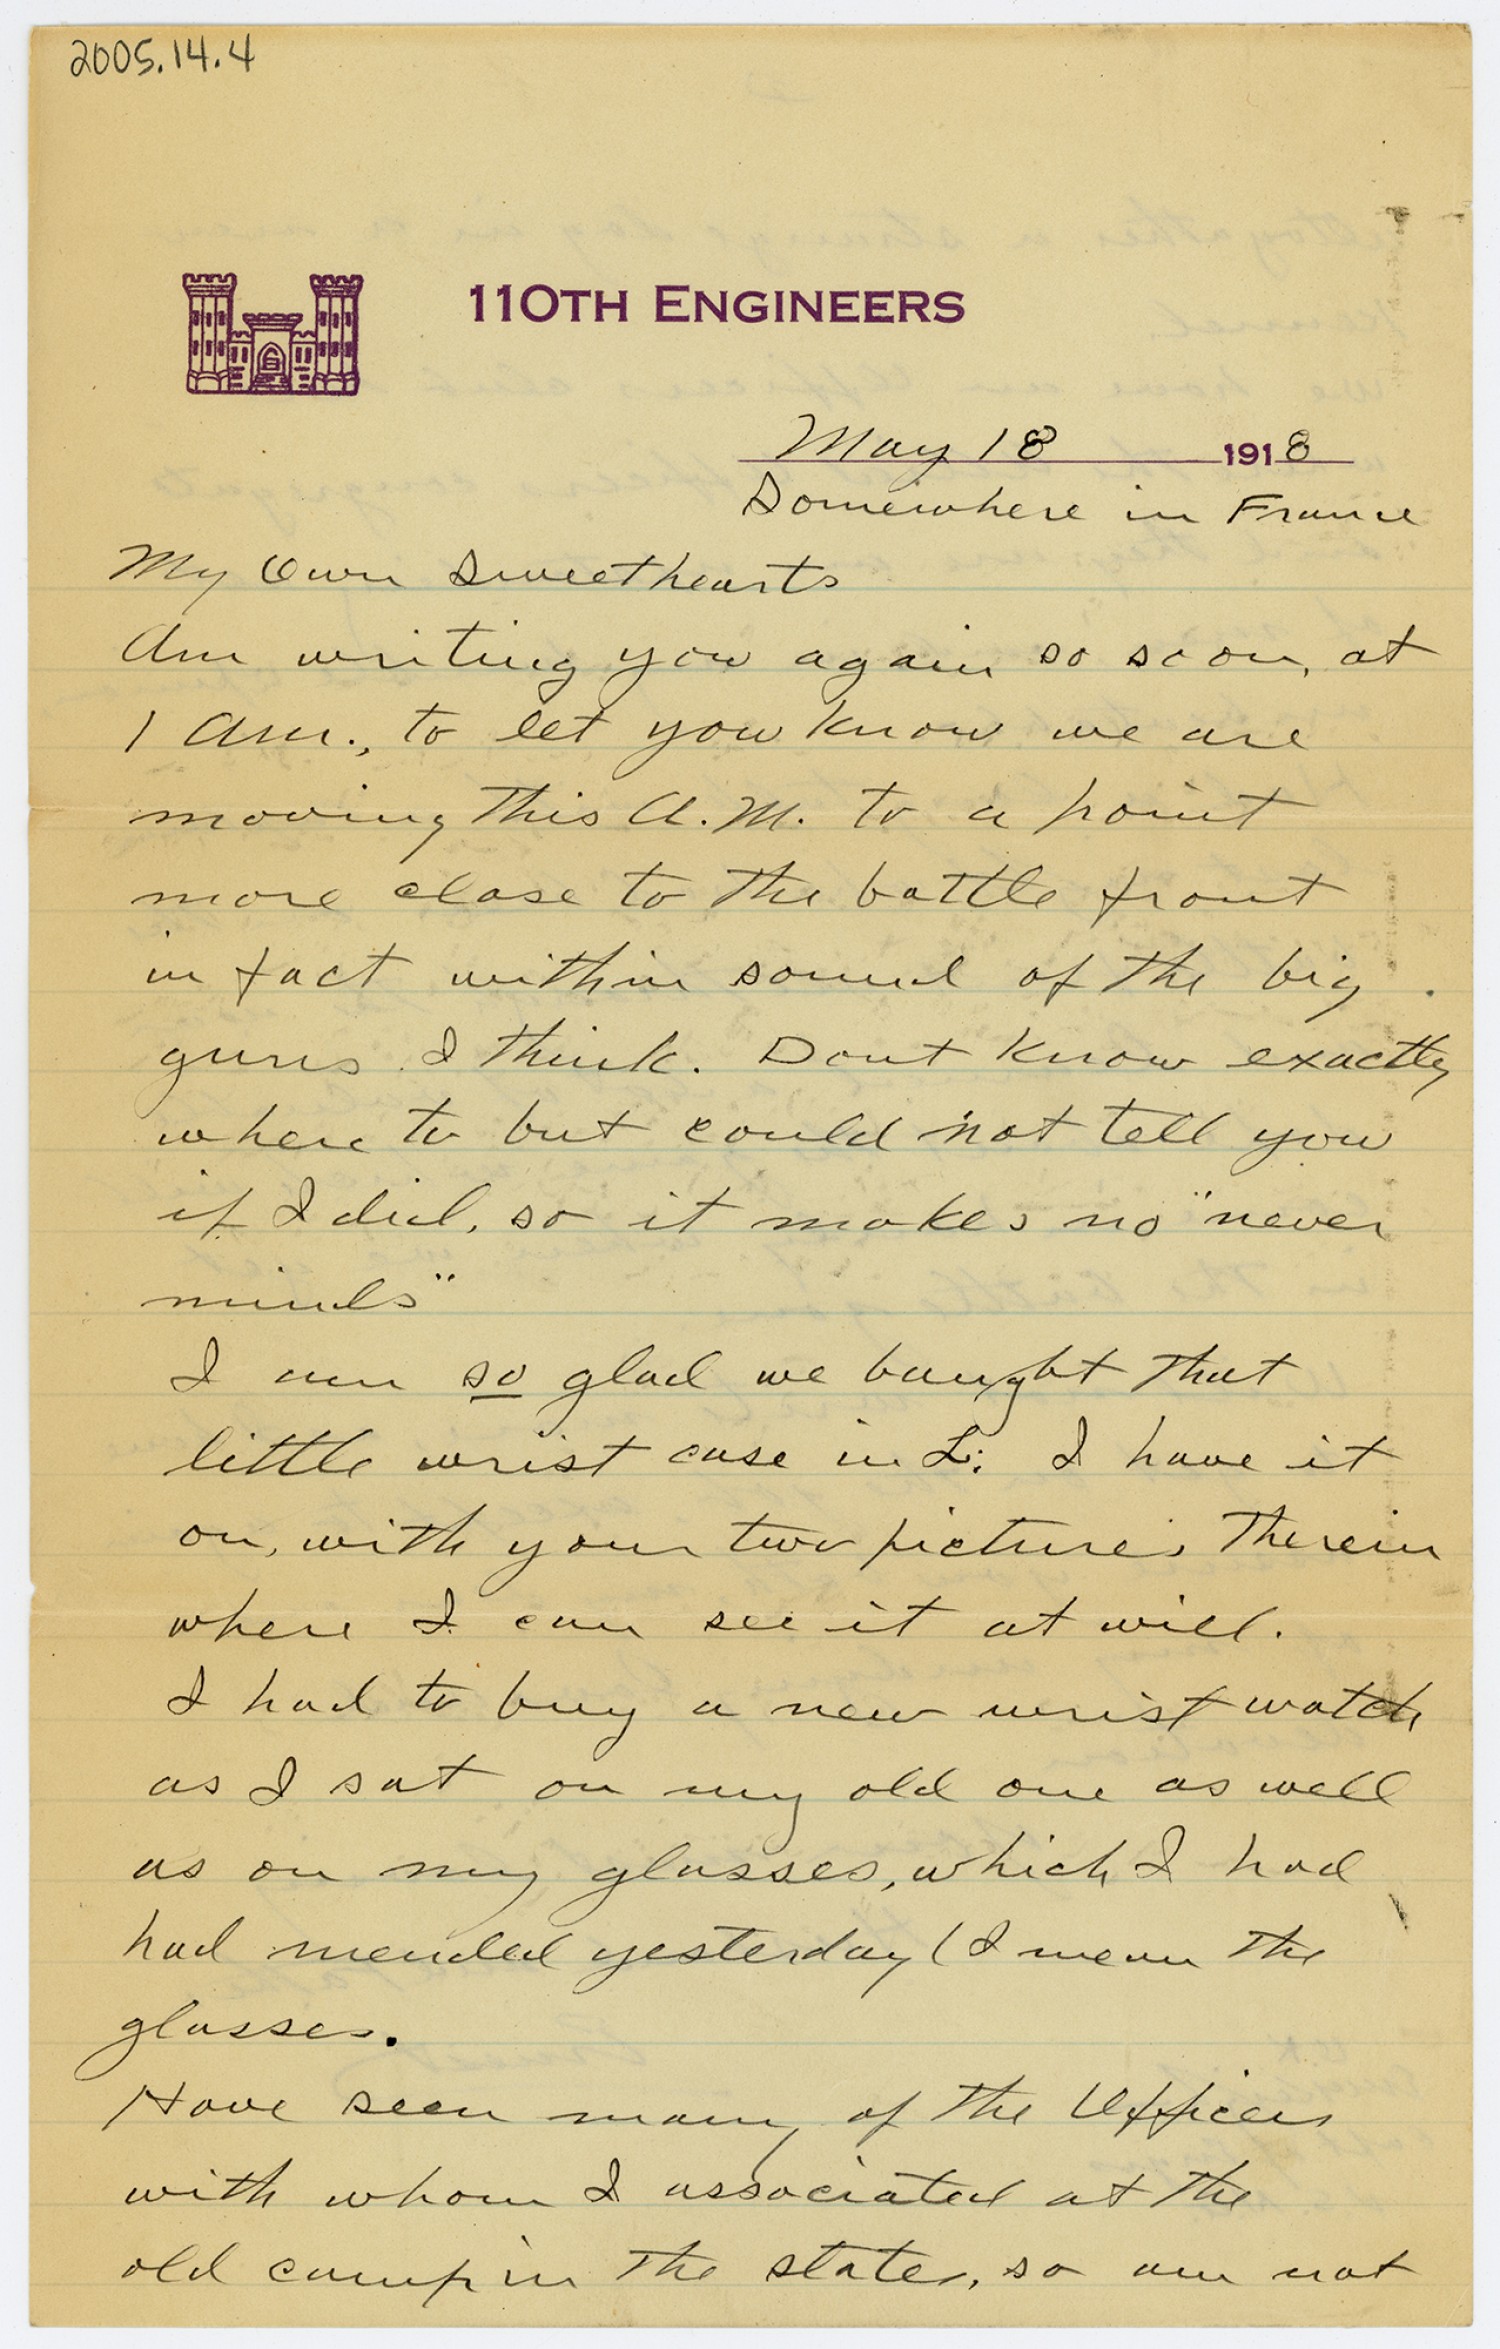 2005.14.4
110TH ENGINEERS
May 18 1918
Somewhere in France
My Own Sweethearts
Am writing you again so soon, at
1 am., to let you know we are
moving this A.M. to a point
more close to the battle front
in fact within sound of the big
guns I think. Dont know exactly
where to but could not tell you
if I did, so it makes no "never
minds"
I am so glad we bought that
little wrist case in L: I have it
on, with your two pictures therein
where I can see it at will.
I had to buy a new wrist watch
as I sat on my old one as well
as on my glasses, which I had
had mended yesterday (I mean the
glasses.
Have seen many of the Officers
with whom I associated at the
old camp in the states, so am not